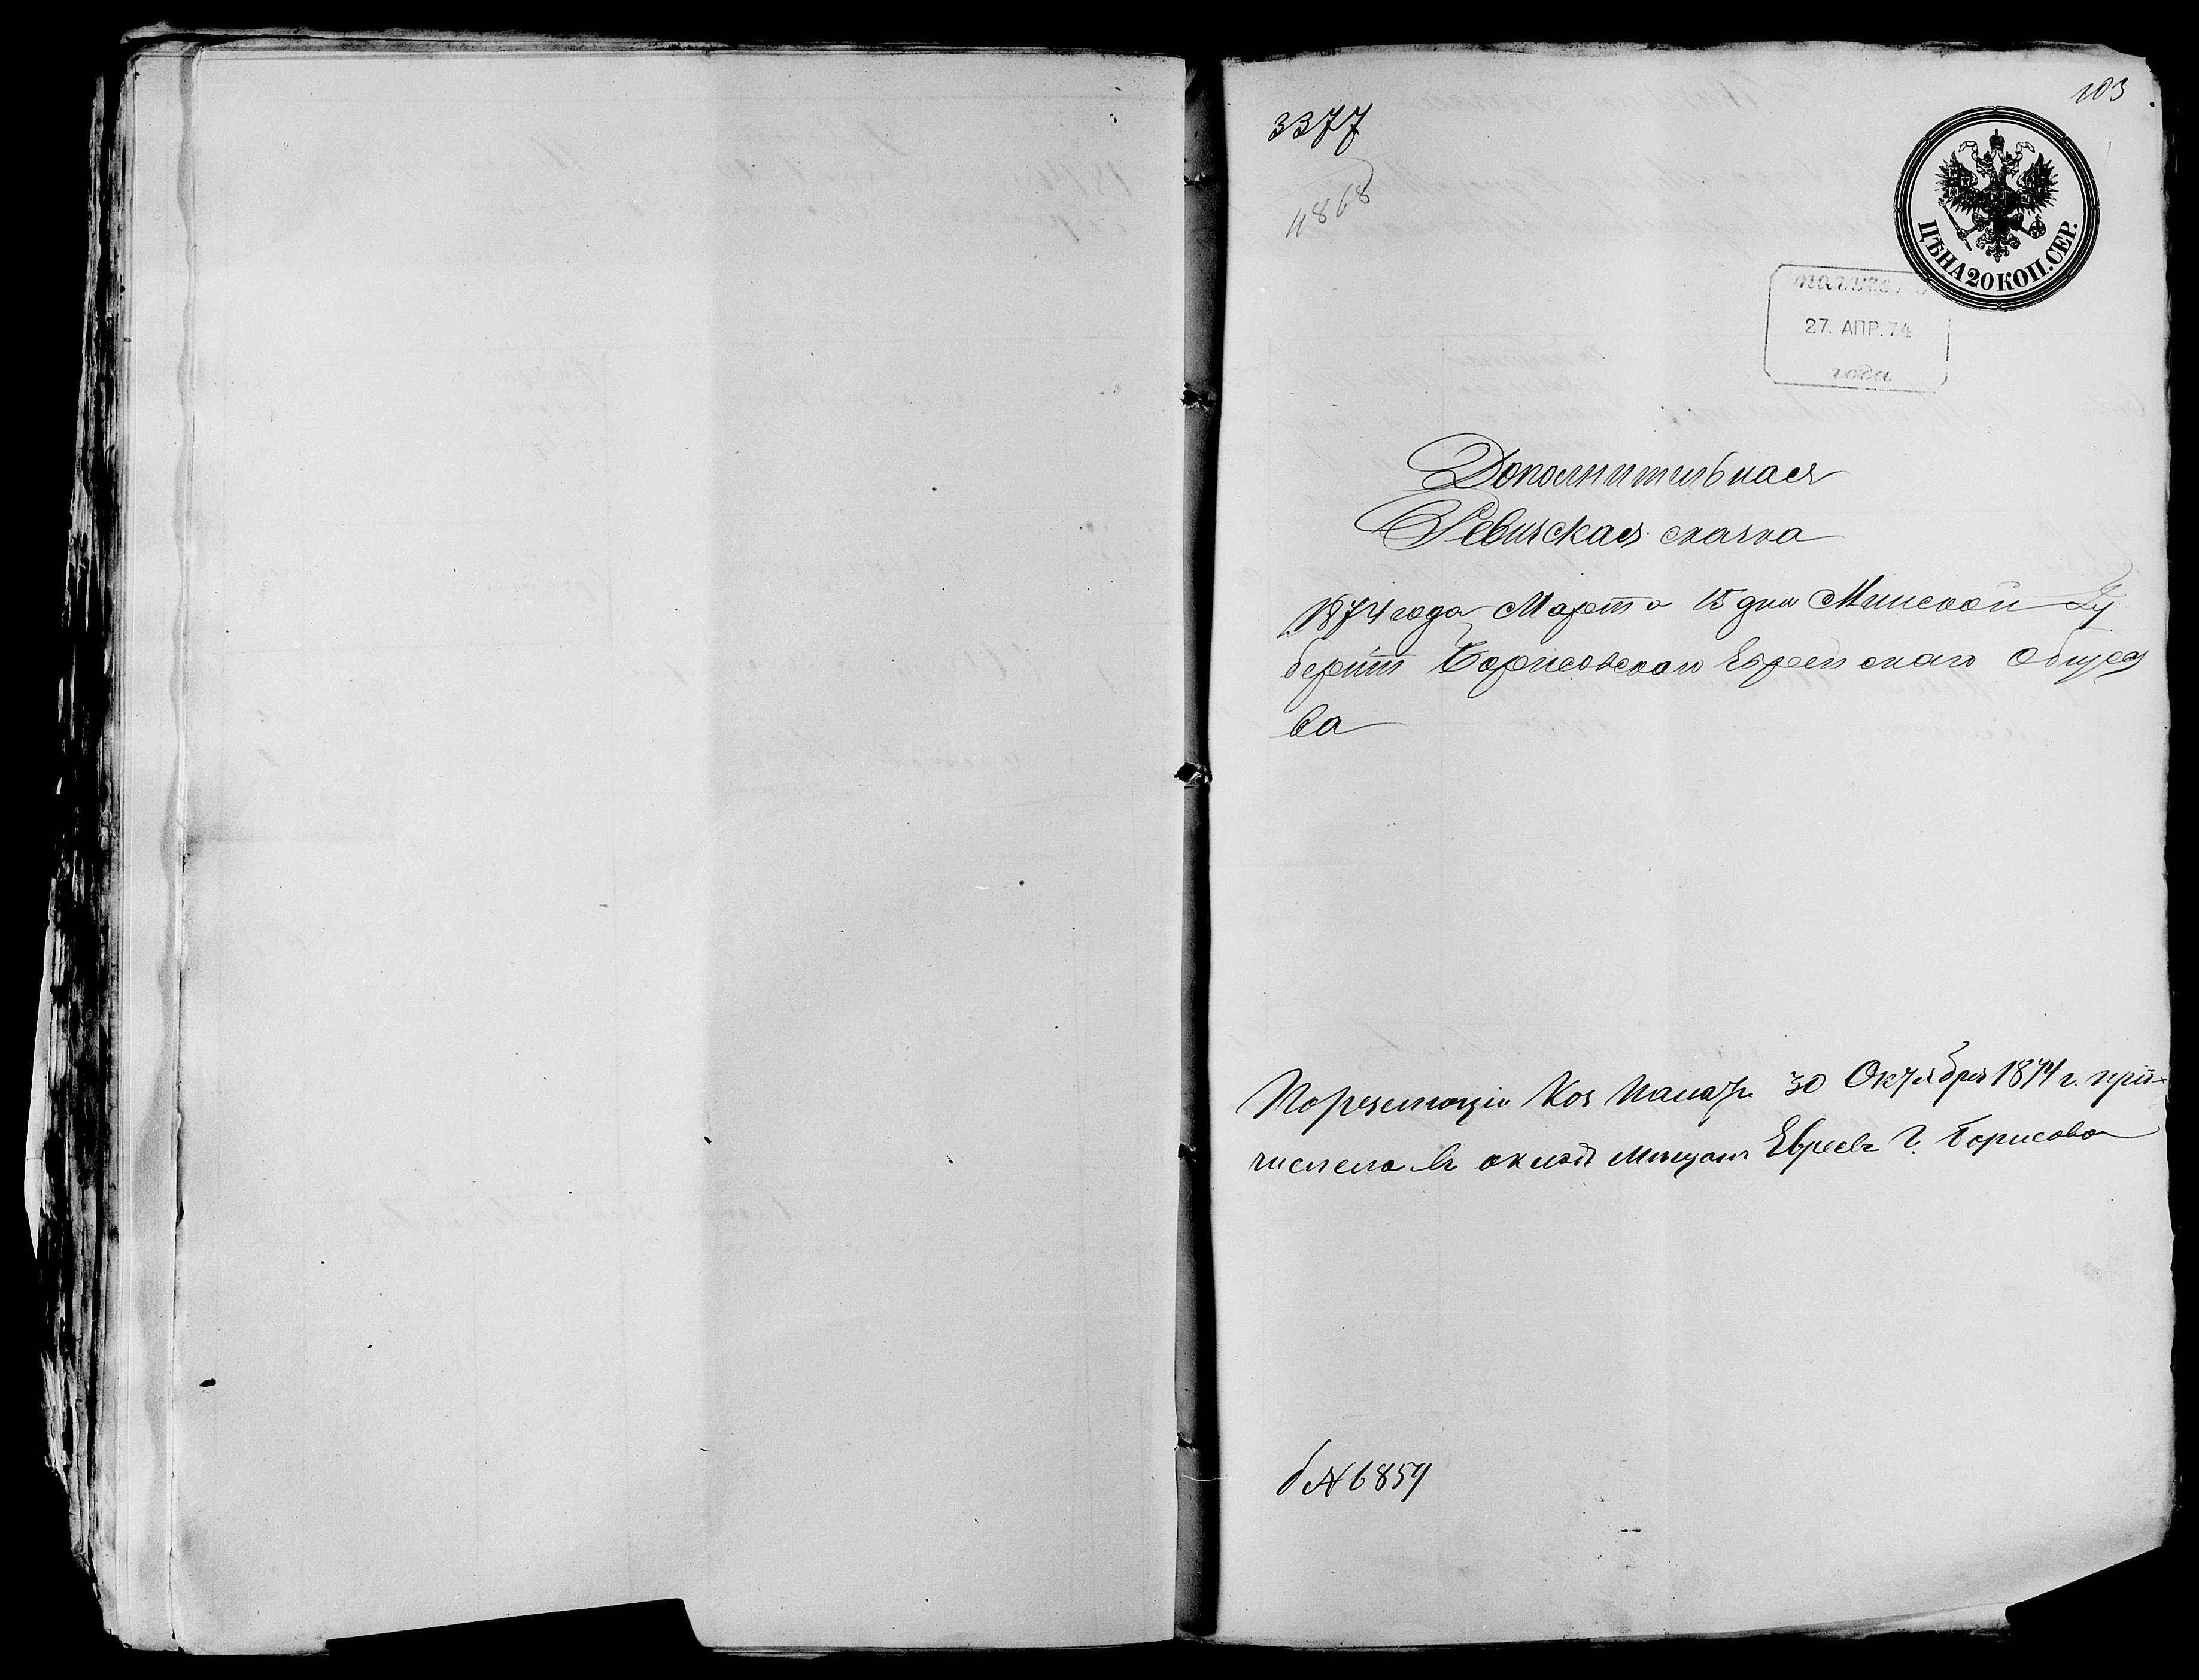 103
3377
4868
ЦѢНА 20 КОП. СЕР.
27. АПР. 74
года
Дополнительная
Ревизская сказка
1874 года Марта 15 дня Минской Гу
берніи Борисовскаго Еврейскаго общес
ва
По резолюціи Каз Палаты 30 Октября 1874 г. при-
числена въ окладъ мѣщанъ Евреевъ г. Борисова
№ 6854